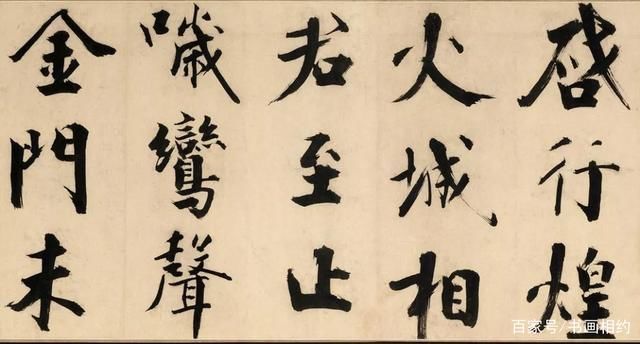 啓行煌
火城相
君至止
噦鸞聲
金門未
百家号/书画相约